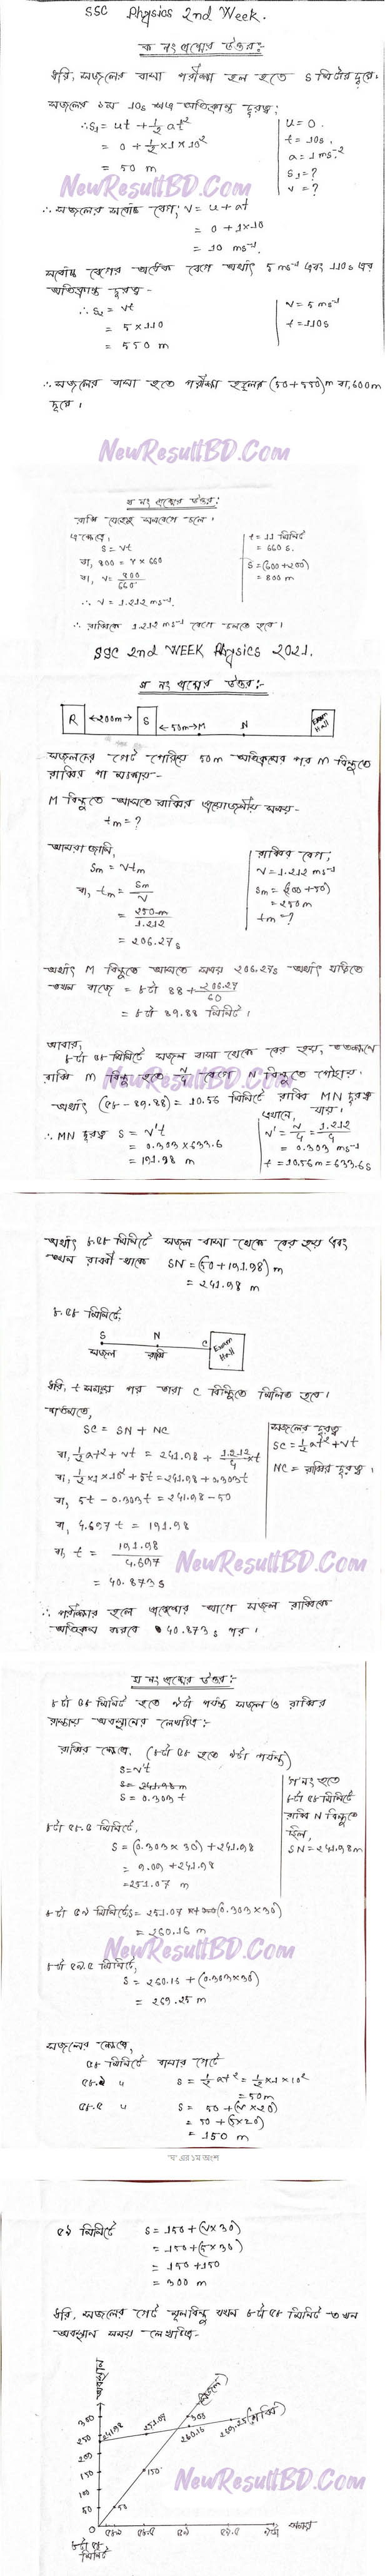 SSC Physics 2nd Week.
ক নং প্রশ্নের উত্তর:-
ধরি, সজলের বাসা পরীক্ষা হল হতে S মিটার দূরে।
সজলের ১ম 10s এ অতিক্রান্ত দূরত্ব;
∴S₁ = ut + ½at²
= 0 + ½×1×10²
= 50 m
u = 0
t = 10s,
a = 1 ms⁻²
S₁ = ?
v = ?
NewResultBD.Com
∴ সজলের সর্বোচ্চ বেগ, v = u + at
= 0 + 1×10
= 10 ms⁻¹.
সর্বোচ্চ বেগের অর্ধেক বেগে অর্থাৎ 5 ms⁻¹ এবং 110s এর
অতিক্রান্ত দূরত্ব -
∴ S₂ = vt
= 5×110
= 550 m
v = 5 ms⁻¹
t = 110s
∴ সজলের বাসা হতে পরীক্ষা হলের (50+550)m বা, 600m
দূরে।
NewResultBD.Com
খ নং প্রশ্নের উত্তর:
রাব্বি যেহেতু সমবেগে চলে।
এক্ষেত্রে,
S = vt
বা, 800 = v × 660
বা, v = 800/660
∴ v = 1.212 ms⁻¹.
t = 11 মিনিট
= 660 s.
S = (600+200)
= 800 m
∴ রাব্বিকে 1.212 ms⁻¹ বেগে চলতে হবে।
SSC 2nd WEEK Physics 2021.
গ নং প্রশ্নের উত্তর:-
R ←200m→ S ←50m→ M N Exam Hall
সজলদের গেট পেরিয়ে 50m অতিক্রমের পর M বিন্দুতে
রাব্বির পা মচকায়-
M বিন্দুতে আসতে রাব্বির প্রয়োজনীয় সময়-
tm = ?
আমরা জানি,
Sm = Vtm
বা, tm = Sm/V
= 250m/1.212
= 206.27s
রাব্বির বেগ,
V = 1.212 ms⁻¹
Sm = (200+50)
= 250m
tm = ?
অর্থাৎ M বিন্দুতে আসতে সময় 206.27s অর্থাৎ ঘড়িতে
তখন বাজে = ৮টা 44 + 206.27/60
= ৮টা 47.44 মিনিট।
আবার,
৮টা ৫৮ মিনিটে সজল বাসা থেকে বের হয়, ততক্ষণে
রাব্বি M বিন্দু হতে V/4 বেগে N বিন্দুতে পৌঁছায়।
NewResultBD.Com
অর্থাৎ (৫৮ - 47.44) = 10.56 মিনিটে রাব্বি MN দূরত্ব যায়।
∴ MN দূরত্ব S = V't
= 0.303 × 633.6
= 191.98 m
এখানে,
V' = V/4 = 1.212/4
= 0.303 ms⁻¹
t = 10.56m = 633.6s
অর্থাৎ ৮.৫৮ মিনিটে সজল বাসা থেকে বের হয় এবং
তখন রাব্বী থাকে SN = (50+191.98) m
= 241.98 m
৮.৫৮ মিনিটে,
S N C Exam Hall
সজল রাব্বি
ধরি, t সময় পর তারা C বিন্দুতে মিলিত হবে।
শর্তমতে,
SC = SN + NC
বা, ½at² + vt = 241.98 + 1.212/4 × t
বা, ½×1×10² + 5t = 241.98 + 0.303t
বা, 5t - 0.303t = 241.98 - 50
বা, 4.697 t = 191.98
বা, t = 191.98/4.697
= 40.873s
সজলের দূরত্ব
SC = ½at² + vt
NC = রাব্বির দূরত্ব।
NewResultBD.Com
∴ পরীক্ষার হলে প্রবেশের আগে সজল রাব্বিকে
অতিক্রম করবে 40.873 s পর।
ঘ নং প্রশ্নের উত্তর:-
৮টা ৫৮ মিনিট হতে ৯টা পর্যন্ত সজল ও রাব্বির
রাস্তায় অবস্থানের লেখচিত্র:-
রাব্বির ক্ষেত্রে, (৮টা ৫৮ হতে ৯টা পর্যন্ত)
S = V't
S = 241.98m
S = 0.303 t
গ নং হতে
৮টা ৫৮ মিনিটে
রাব্বি N বিন্দুতে
ছিল,
SN = 241.98m
৮টা ৫৮.৫ মিনিটে,
S = (0.303 × 30) + 241.98
= 9.09 + 241.98
= 251.07 m
৮টা ৫৯ মিনিটে, S = 251.07 + (0.303×30)
= 260.16 m
NewResultBD.Com
৮টা ৫৯.৫ মিনিটে,
S = 260.16 + (0.303×30)
= 269.25 m
সজলের ক্ষেত্রে,
৫৮ মিনিটে বাসার গেটে
S = ½at² = ½×1×10²
= 50m
৫৮.৫ " S = 50 + (V×20)
= 50 + (5×20)
= 150 m
'ঘ' এর ১ম অংশ
৫৯ মিনিটে S = 150 + (V×30)
= 150 + (5×30)
= 150 + 150
= 300 m
ধরি, সজলের গেট মূলবিন্দু যখন ৮টা ৫৮ মিনিট তখন
অবস্থান সময় লেখচিত্র-
অবস্থান
300
250
200
150
100
50
0
241.98
251.07
260.16
269.25 (রাব্বি)
(সজল)
300
150
50
৫৮.৫
৫৯
৫৯.৫
৯টা
সময়
৮টা ৫৮
মিনিট
NewResultBD.Com